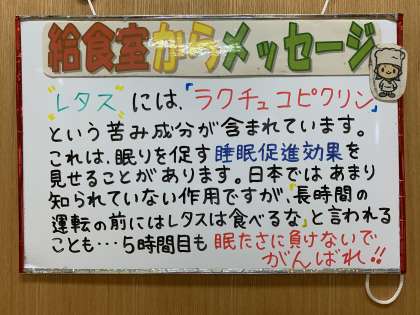 給食室からメッセージ
"レタス"には、「ラクチュコピクリン」
という苦み成分が含まれています。
これは、眠りを促す睡眠促進効果を
見せることがあります。日本ではあまり
知られていない作用ですが、「長時間の
運転の前にはレタスは食べるな」と言われる
ことも…5時間目も眠たさに負けないで
がんばれ!!